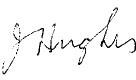 J Hughes